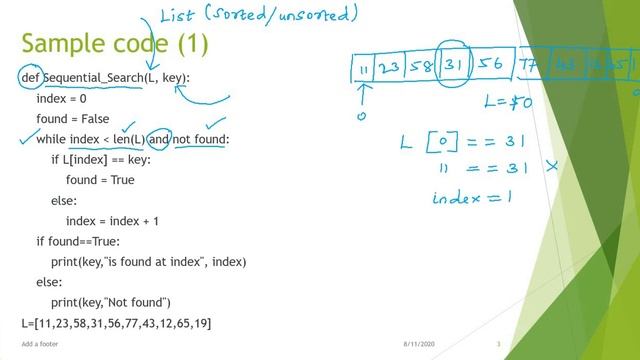 List (sorted/unsorted)
Sample code (1)
def Sequential_Search(L, key):
index = 0
found = False
while index < len(L) and not found:
if L[index] == key:
found = True
else:
index = index + 1
if found==True:
print(key,"is found at index", index)
else:
print(key,"Not found")
L=[11,23,58,31,56,77,43,12,65,19]
11 23 58 31 56 77 43 12 65
0
L=10
L [0] == 31
11 == 31 X
index = 1
Add a footer
8/11/2020
3